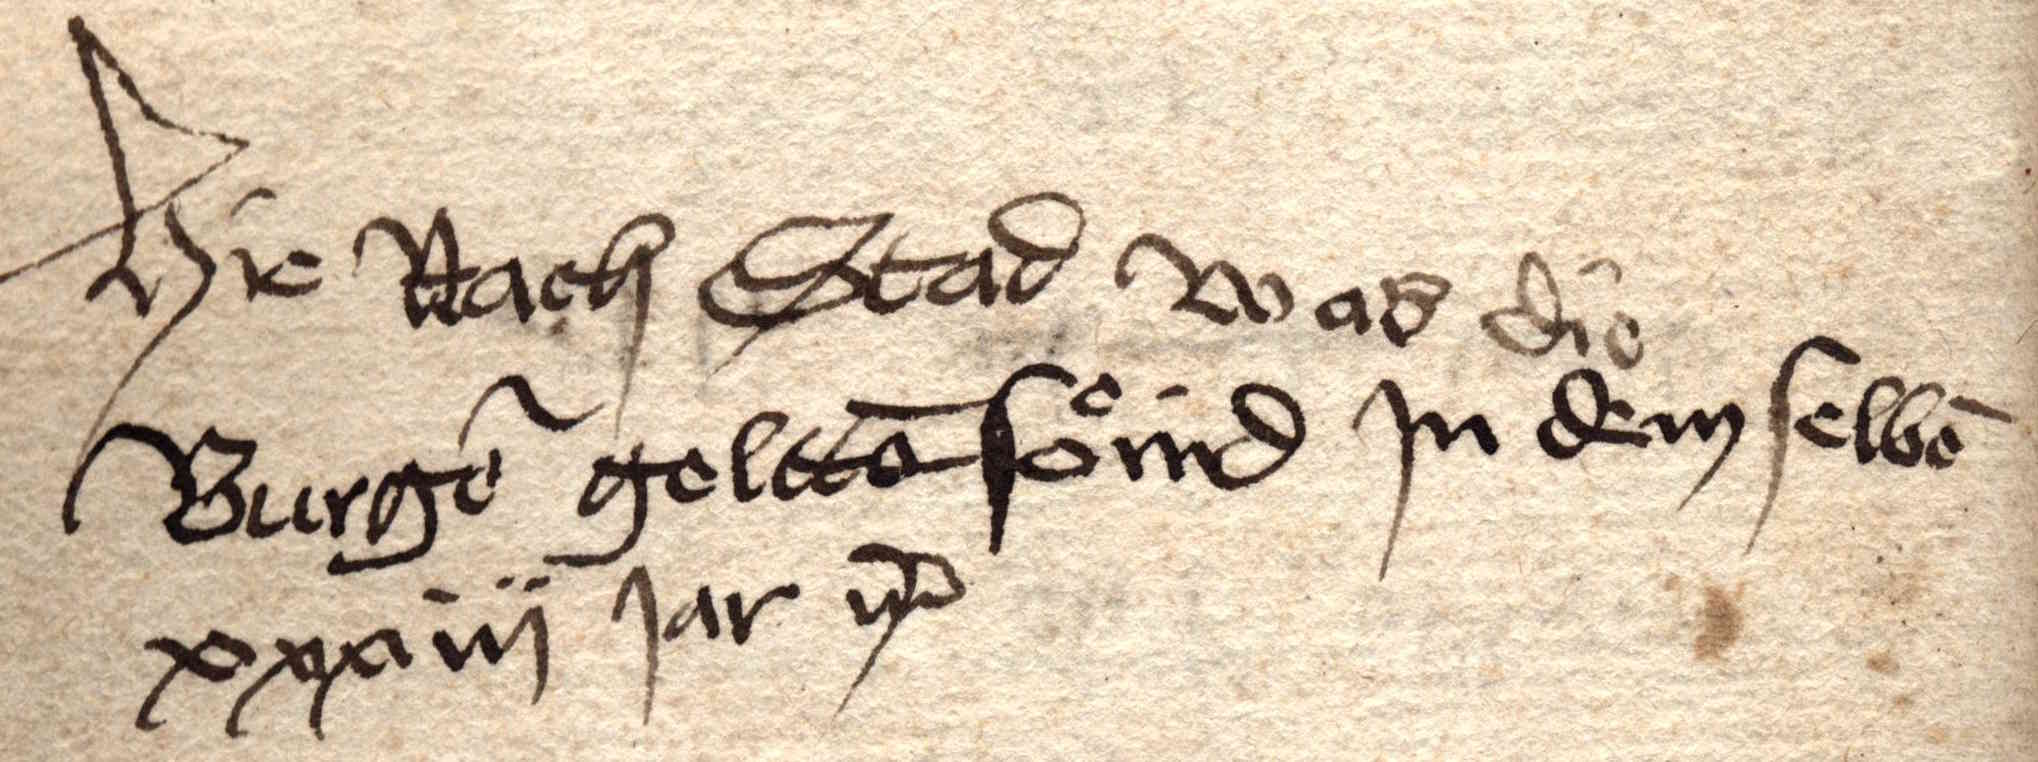 Hie Nach Stad was die
Burgẽ gelttẽ söind Jn dem selbẽ
xxxiiij Jar